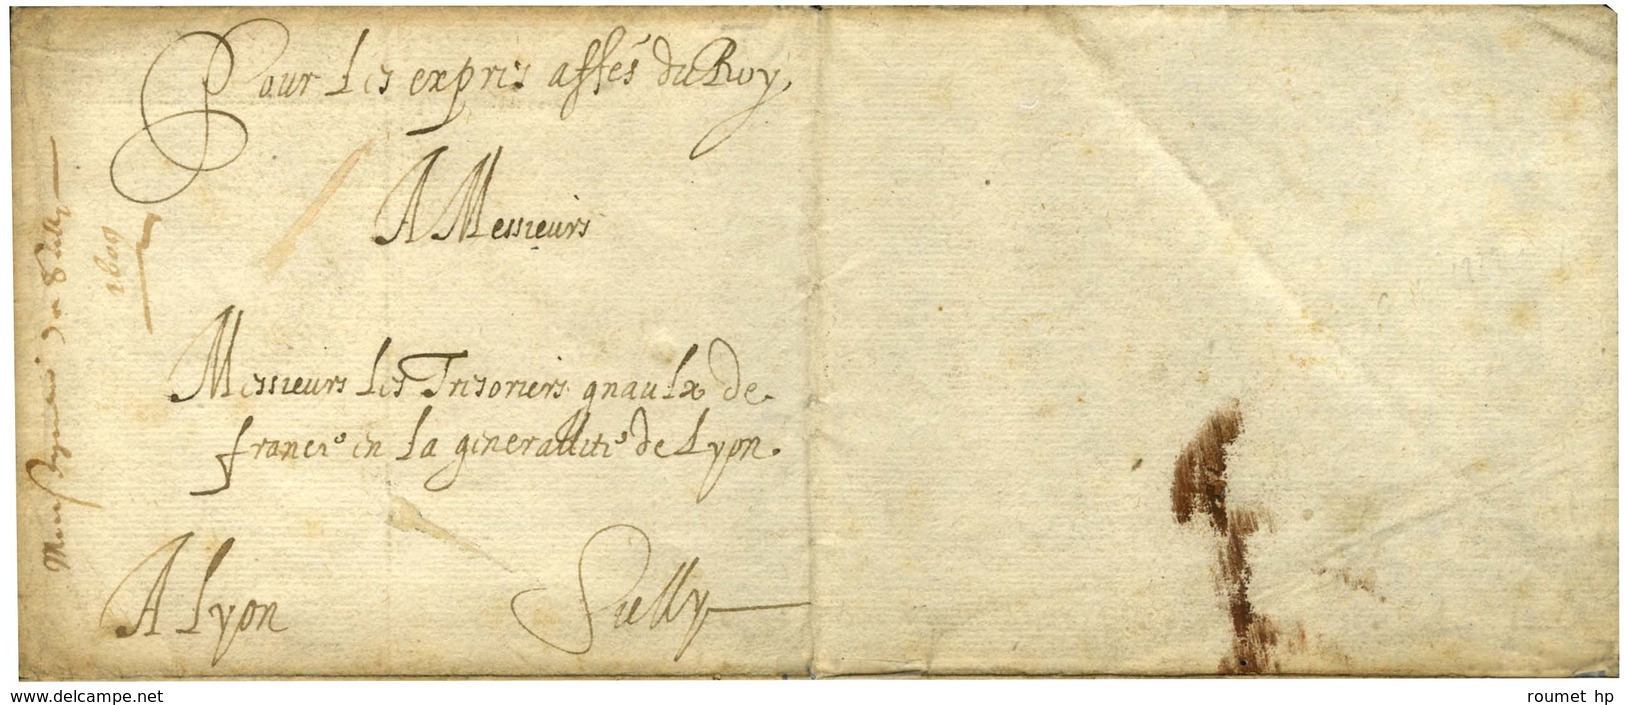 Pour les exprés affes du Roy,
A Messieurs
Messieurs les Tresoriers gnaulx de
france en la generallité de Lyon.
A Lyon
Sully
Monseigneur de Sully
1609
www.delcampe.net
roumet hp